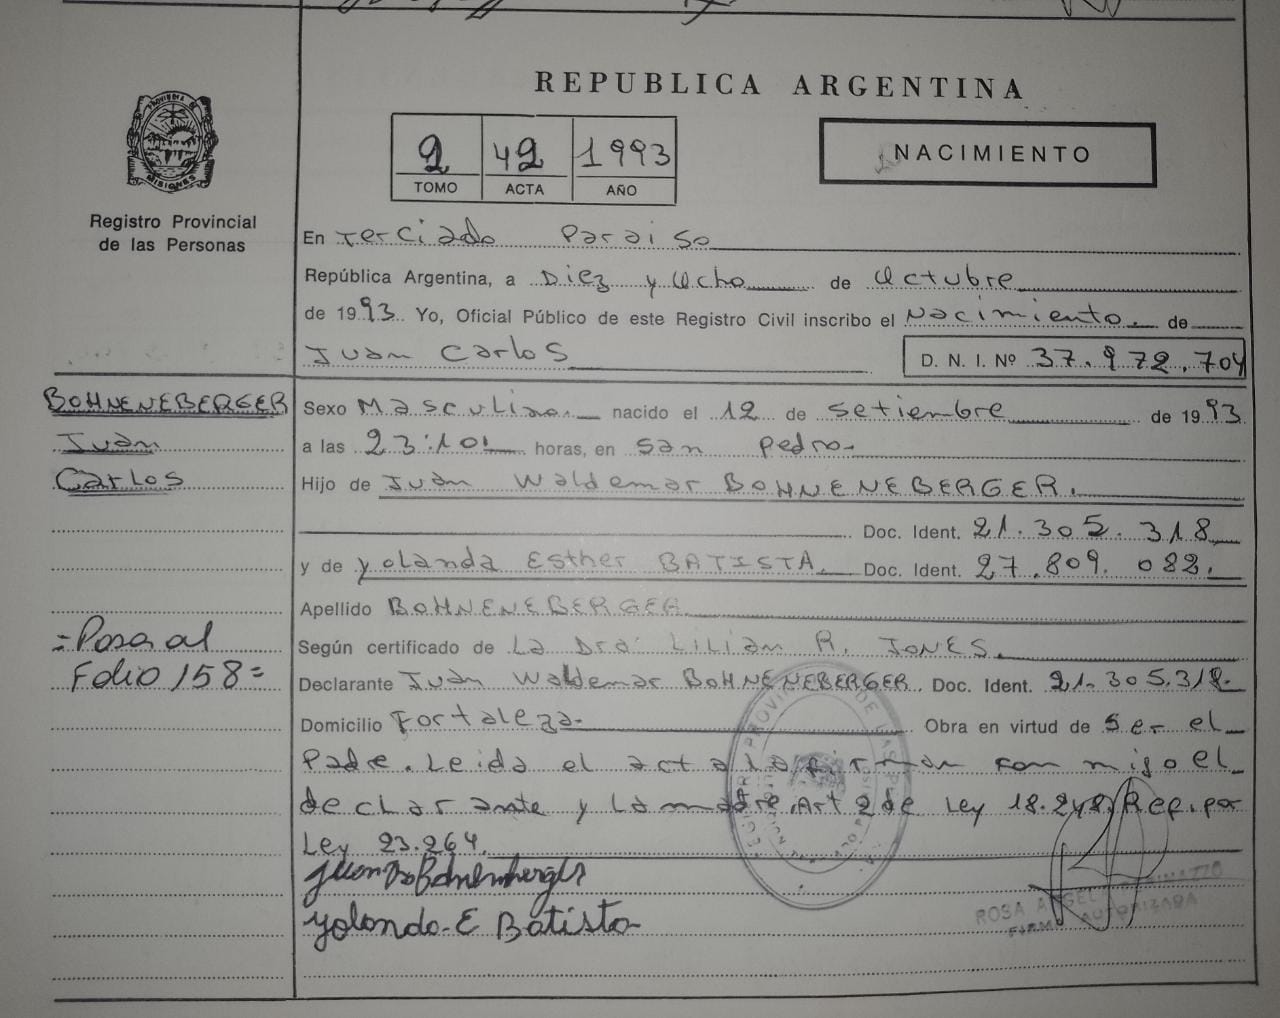 REPUBLICA ARGENTINA
2 42 1993
TOMO ACTA AÑO
NACIMIENTO
PROVINCIA DE MISIONES
Registro Provincial
de las Personas
En Terciado Paraiso
República Argentina, a Diez y Ocho de Octubre
de 1993. Yo, Oficial Público de este Registro Civil inscribo el Nacimiento. de
Juan Carlos
D. N. I. Nº 37.972.704
BOHNENEBERGER
Juan
Carlos
=Pasa al
Folio 158=
Sexo Masculino. nacido el 12 de setiembre de 1993
a las 23:10 horas, en san Pedro-
Hijo de Juan Waldemar BOHNENEBERGER.
Doc. Ident. 21.305.318
y de Yolanda Esther BATISTA. Doc. Ident. 27.809.082.
Apellido BOHNENEBERGER
Según certificado de La Dra: LiLian R. JONES.
Declarante Juan Waldemar BOHNENEBERGER. Doc. Ident. 21.305.318-
Domicilio Fortaleza- Obra en virtud de Ser el
Padre. Leida el acta la firman con migo el
declarante y La madre. Art 2 de Ley 18.248, Rep. por
Ley 23.264.
Yolanda E Batista
ROSA
FIRMA AUTORIZADA